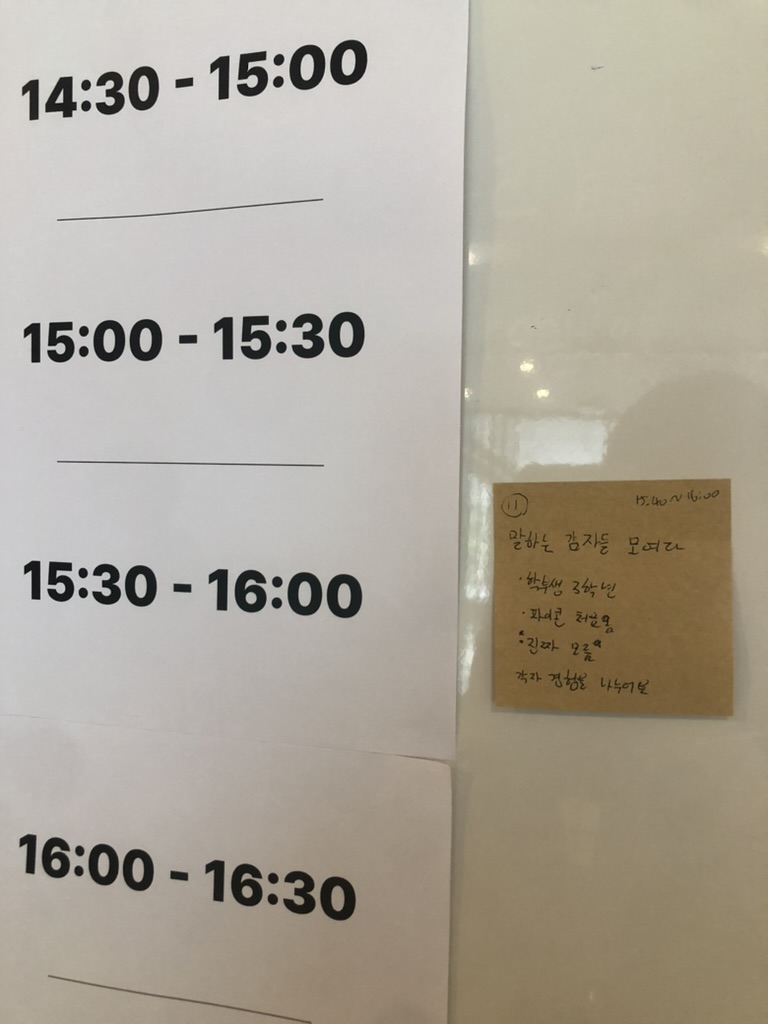 14:30 - 15:00
15:00 - 15:30
15:30 - 16:00
16:00 - 16:30
11
15:40 ~ 16:00
말하는 감자들 모여라
· 학부생 3학년
· 파이콘 처음옴
· "진짜 모름"
각자 경험을 나누어보